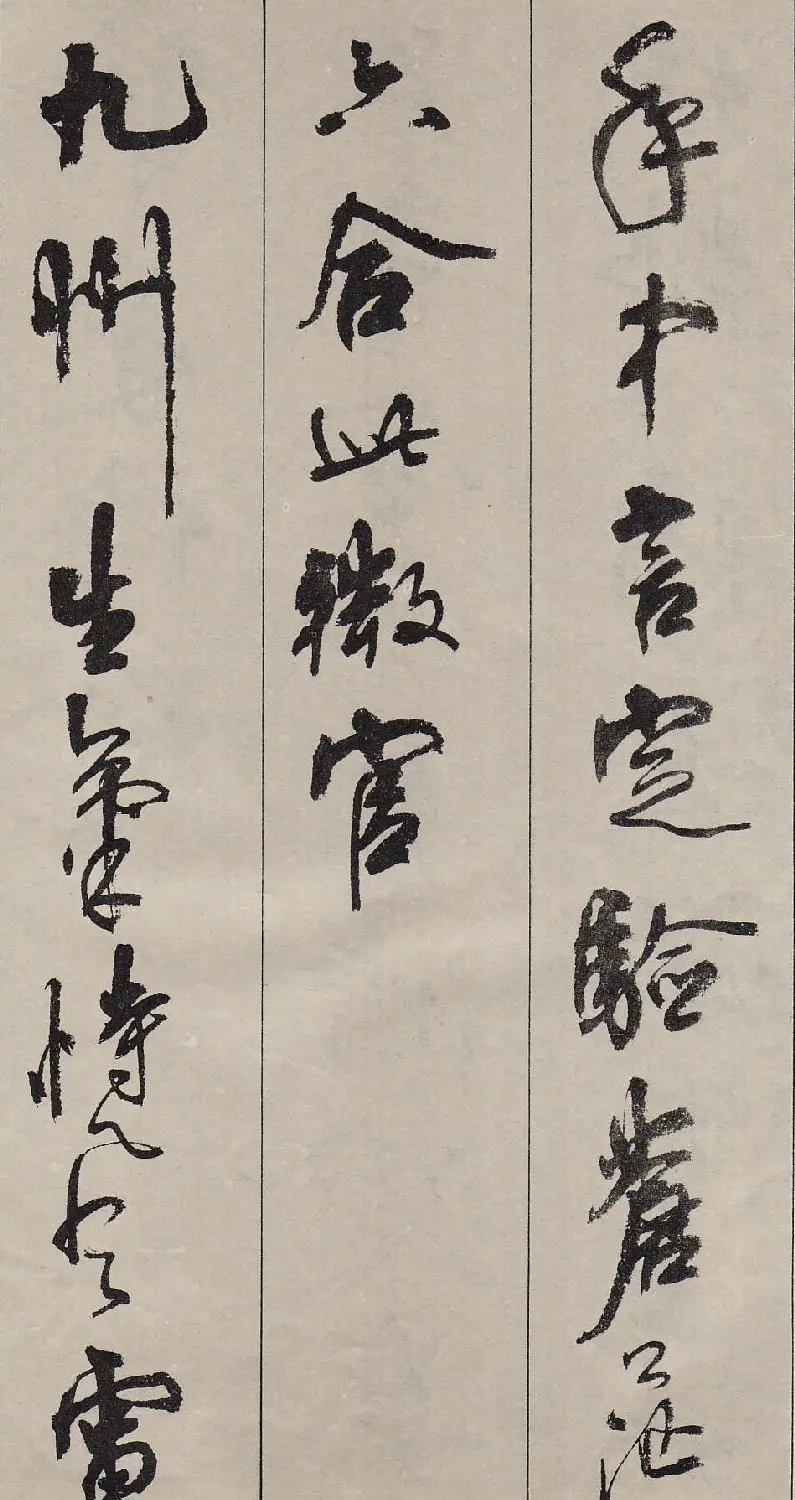 年中言定驗蒼茫
六合此微官
九州生氣恃風雷